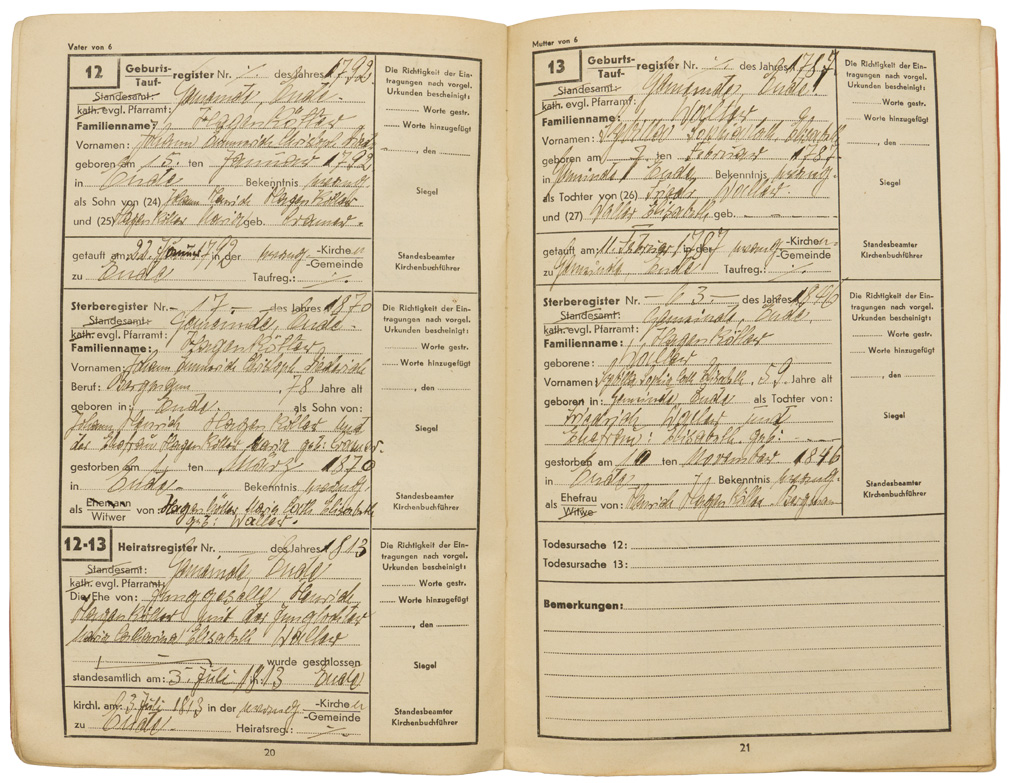 Vater von 6
12 Geburts-
Tauf- register Nr. ·/. des Jahres 1792
Standesamt:
kath. evgl. Pfarramt: Gemeinde, Ende.
Familienname: Hagenkötter
Vornamen: Johann Christoph
geboren am 15. ten Januar 1792
in Ende Bekenntnis evang.
als Sohn von (24) Johann Henrich Hagenkötter
und (25) Hagenkötter Maria geb. Cramer.
getauft am: 22. Januar 1792 in der evang -Kirchen
-Gemeinde
zu Ende Taufreg.: ·/.
Die Richtigkeit der Ein-
tragungen nach vorgel.
Urkunden bescheinigt:
Worte gestr.
Worte hinzugefügt
, den
Siegel
Standesbeamter
Kirchenbuchführer
Sterberegister Nr. 17 des Jahres 1870
Standesamt:
kath. evgl. Pfarramt: Gemeinde, Ende.
Familienname: Hagenkötter
Vornamen: Johann Christoph Diedrich
Beruf: Bergmann 78 Jahre alt
geboren in: Ende. als Sohn von:
Johann Henrich Hagenkötter und
der Ehefrau Hagenkötter Maria geb: Cramer.
gestorben am ten März 1870
in Ende Bekenntnis evang.
als Ehemann
Witwer von Hagenkötter Maria Cath Elisabeth
geb: Waller.
Die Richtigkeit der Ein-
tragungen nach vorgel.
Urkunden bescheinigt:
Worte gestr.
Worte hinzugefügt
, den
Siegel
Standesbeamter
Kirchenbuchführer
12-13 Heiratsregister Nr. des Jahres 1813
Standesamt:
kath. evgl. Pfarramt: Gemeinde, Ende
Die Ehe von: Junggeselle Henrich
Hagenkötter und der Jungtochter
Maria Catharina Elisabeth Waller
wurde geschlossen
standesamtlich am: 3. Juli 1813 Ende
kirchl. am: 3 Juli 1813 in der evang -Kirchen
-Gemeinde
zu Ende Heiratsreg.: ·/.
Die Richtigkeit der Ein-
tragungen nach vorgel.
Urkunden bescheinigt:
Worte gestr.
Worte hinzugefügt
, den
Siegel
Standesbeamter
Kirchenbuchführer
20
Mutter von 6
13 Geburts-
Tauf- register Nr. ·/. des Jahres 1787
Standesamt:
kath. evgl. Pfarramt: Gemeinde, Ende.
Familienname: Voeller
Vornamen: Cath Elisabeth
geboren am 7 ten Februar 1787
in Gemeinde Ende Bekenntnis evang.
als Tochter von (26)
und (27) Elisabeth geb.
getauft am: 11. Februar 1787 in der evang -Kirchen
-Gemeinde
zu Gemeinde Ende Taufreg.: ·/.
Die Richtigkeit der Ein-
tragungen nach vorgel.
Urkunden bescheinigt:
Worte gestr.
Worte hinzugefügt
, den
Siegel
Standesbeamter
Kirchenbuchführer
Sterberegister Nr. 63 des Jahres 1846
Standesamt:
kath. evgl. Pfarramt: Gemeinde, Ende
Familienname: Hagenkötter
geborene: Voeller
Vornamen: Cath Elisabeth. 59 Jahre alt
geboren in: Gemeinde, Ende als Tochter von:
Friedrich und
Ehefrau: Elisabeth geb:
gestorben am 10 ten November 1846
in Ende Bekenntnis evang.
als Ehefrau
Witwe von: Henrich Hagenkötter Bergmann
Die Richtigkeit der Ein-
tragungen nach vorgel.
Urkunden bescheinigt:
Worte gestr.
Worte hinzugefügt
, den
Siegel
Standesbeamter
Kirchenbuchführer
Todesursache 12:
Todesursache 13:
Bemerkungen:
21